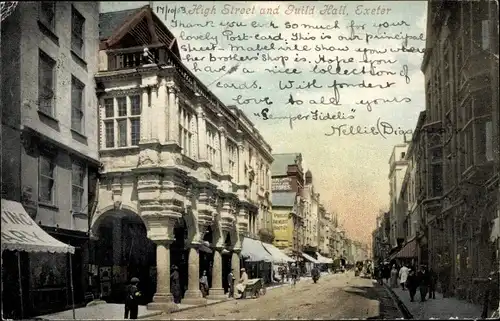 17103 High Street and Guild Hall, Exeter
Thank you ever so much for your
lovely Post-card, This is our principal
Street- will show you where
her brothers' Shop is. Hope you
have a nice collection of
cards. With fondest
love to all, yours
"Semper Fidelis"
Nellie